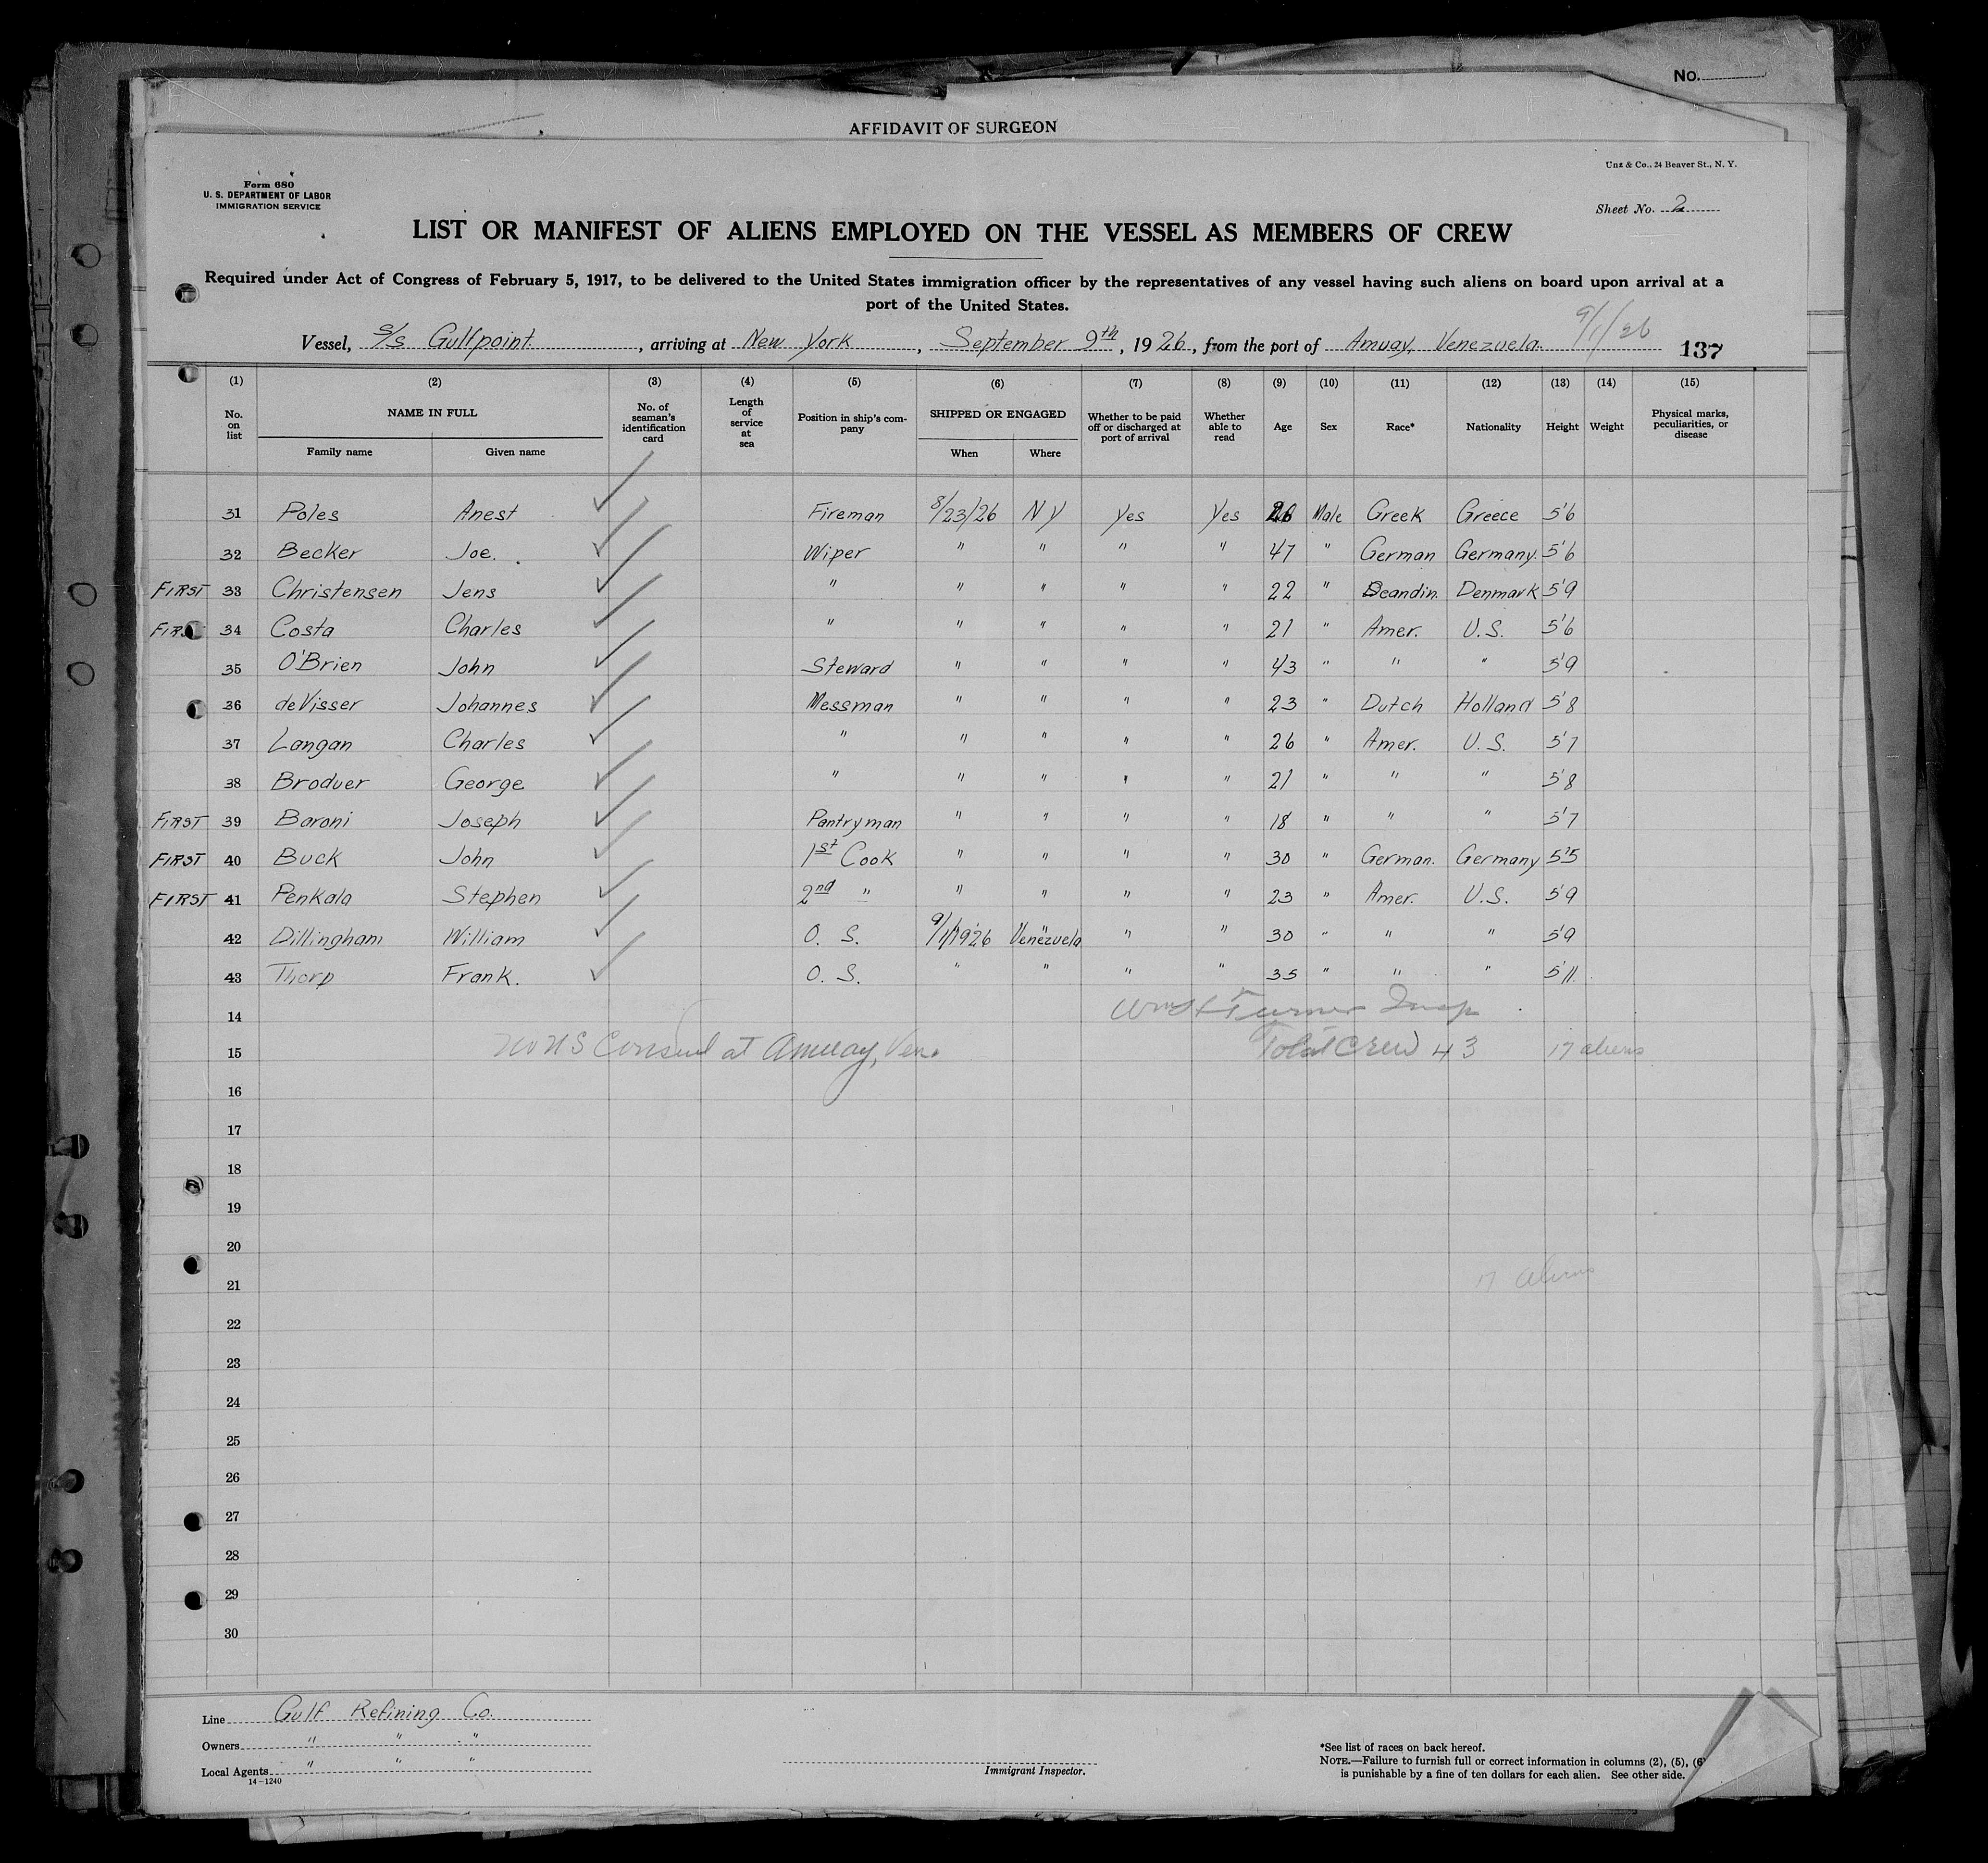 No.
AFFIDAVIT OF SURGEON
Unz & Co., 24 Beaver St., N. Y.
Form 680
U. S. DEPARTMENT OF LABOR
IMMIGRATION SERVICE
Sheet No. 2
LIST OR MANIFEST OF ALIENS EMPLOYED ON THE VESSEL AS MEMBERS OF CREW
Required under Act of Congress of February 5, 1917, to be delivered to the United States immigration officer by the representatives of any vessel having such aliens on board upon arrival at a
port of the United States.
Vessel, S/S Gulfpoint, arriving at New York, September 9th, 1926, from the port of Amuay, Venezuela. 9/1/26 137
(1) (2) (3) (4) (5) (6) (7) (8) (9) (10) (11) (12) (13) (14) (15)
No. on list NAME IN FULL Family name Given name No. of seaman's identification card Length of service at sea Position in ship's company SHIPPED OR ENGAGED When Where Whether to be paid off or discharged at port of arrival Whether able to read Age Sex Race* Nationality Height Weight Physical marks, peculiarities, or disease
31 Poles Anest Fireman 8/23/26 NY Yes Yes 26 Male Greek Greece 5'6
32 Becker Joe. Wiper " " " " 47 " German Germany. 5'6
FIRST 33 Christensen Jens " " " " " 22 " Scandin. Denmark 5'9
FIRST 34 Costa Charles " " " " " 21 " Amer. U.S. 5'6
35 O'Brien John Steward " " " " 43 " " " 5'9
36 deVisser Johannes Messman " " " " 23 " Dutch Holland 5'8
37 Langan Charles " " " " " 26 " Amer. U.S. 5'7
38 Broduer George " " " " " 21 " " " 5'8
FIRST 39 Baroni Joseph Pantryman " " " " 18 " " " 5'7
FIRST 40 Buck John 1st Cook " " " " 30 " German. Germany 5'5
FIRST 41 Penkala Stephen 2nd " " " " " 23 " Amer. U.S. 5'9
42 Dillingham William O. S. 9/1/1926 Venezuela " " 30 " " " 5'9
43 Thorp Frank. O. S. " " " " 35 " " " 5'11
14 Turner Insp
15 No US Consul at Amuay, Ven. Total Crew 43 17 aliens
16
17
18
19
20
21 17 aliens
22
23
24
25
26
27
28
29
30
Line Gulf Refining Co.
Owners " " "
Local Agents " " "
14-1240
Immigrant Inspector.
*See list of races on back hereof.
NOTE.—Failure to furnish full or correct information in columns (2), (5), (6)
is punishable by a fine of ten dollars for each alien. See other side.